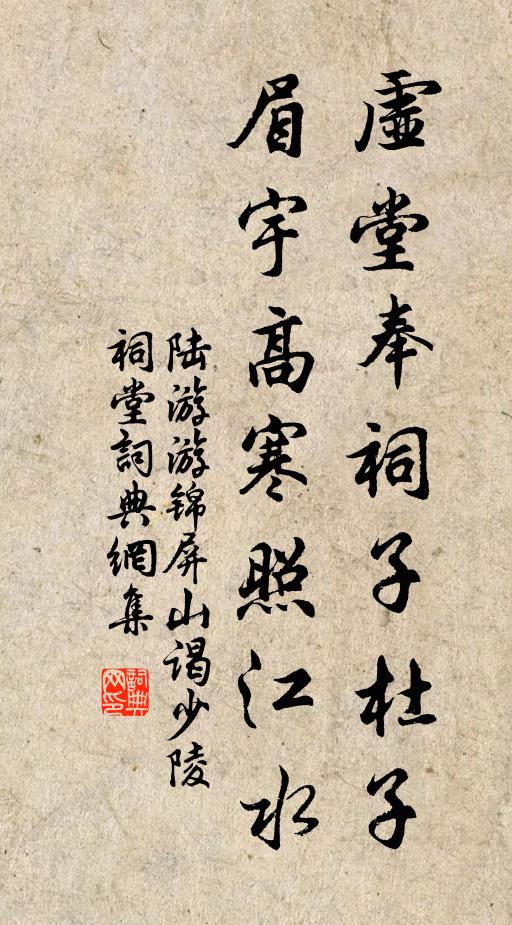 虛堂奉祠子杜子
眉宇高寒照江水
陆游游锦屏山谒少陵
祠堂詞典網集
詞典网印